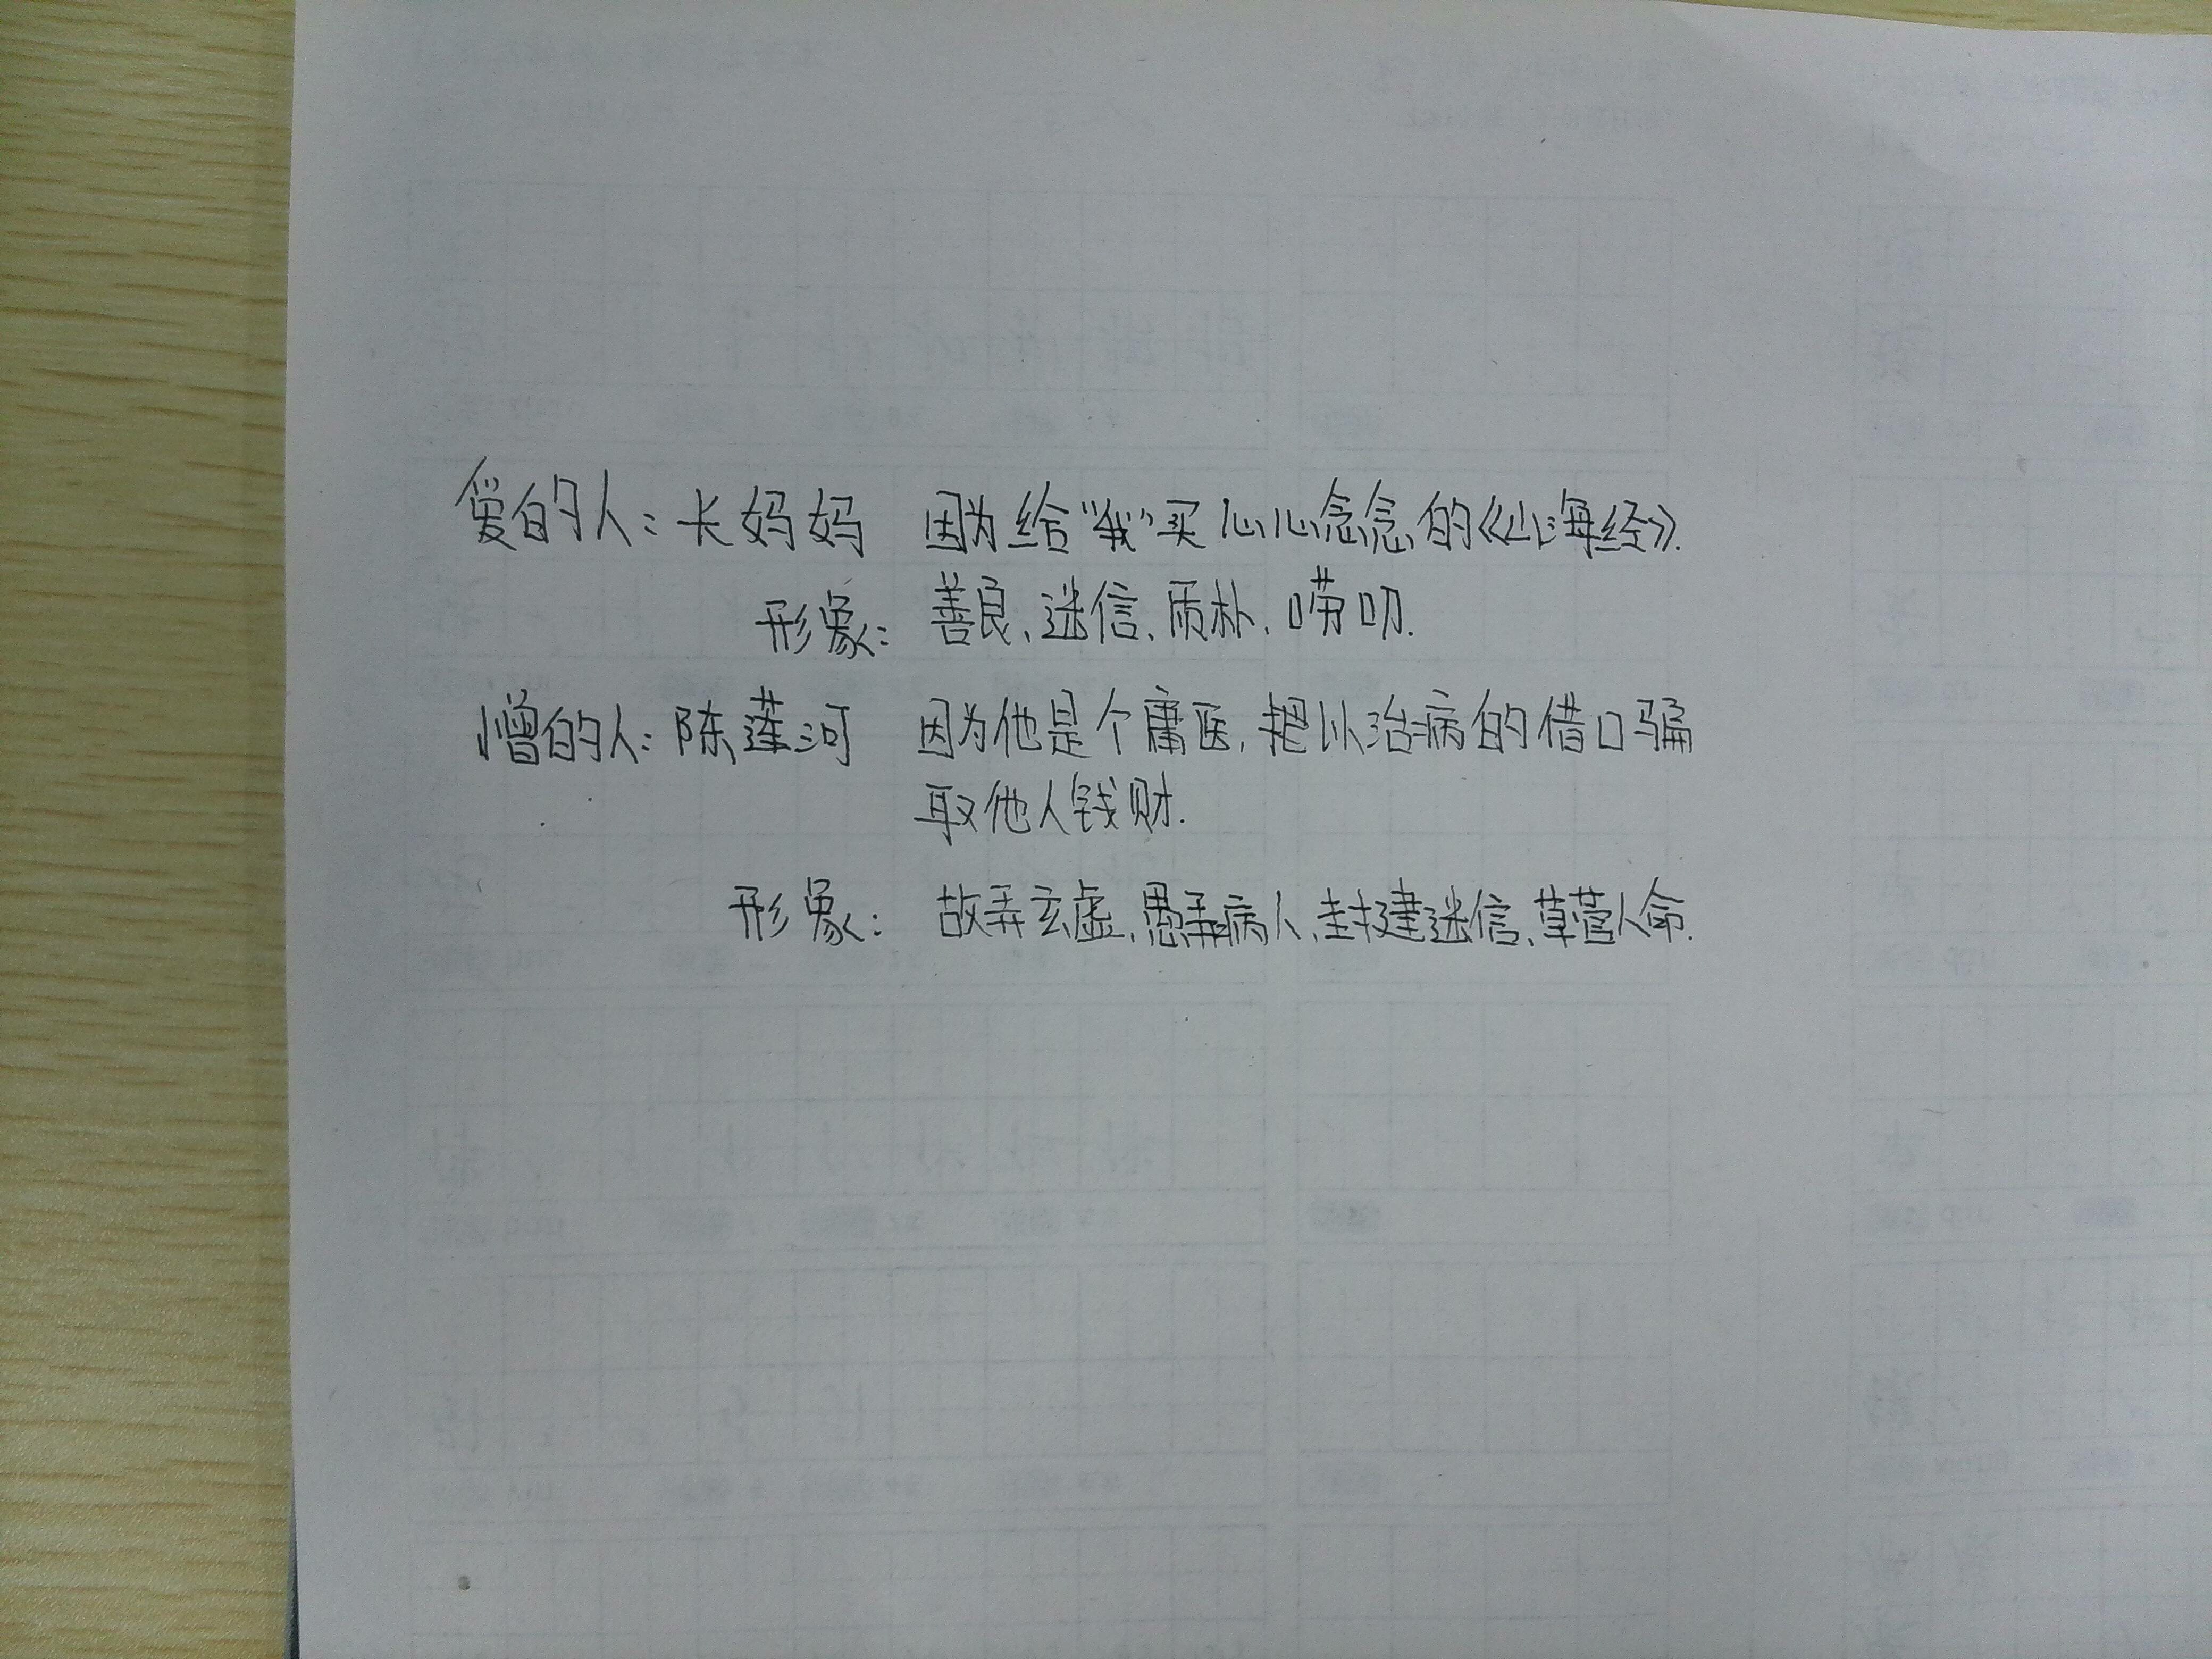 爱的人：长妈妈 因为给“我”买心心念念的《山海经》.
形象：善良、迷信、质朴、唠叨.
憎的人：陈莲河 因为他是个庸医，把以治病的借口骗
取他人钱财.
形象：故弄玄虚、愚弄病人、封建迷信、草菅人命.